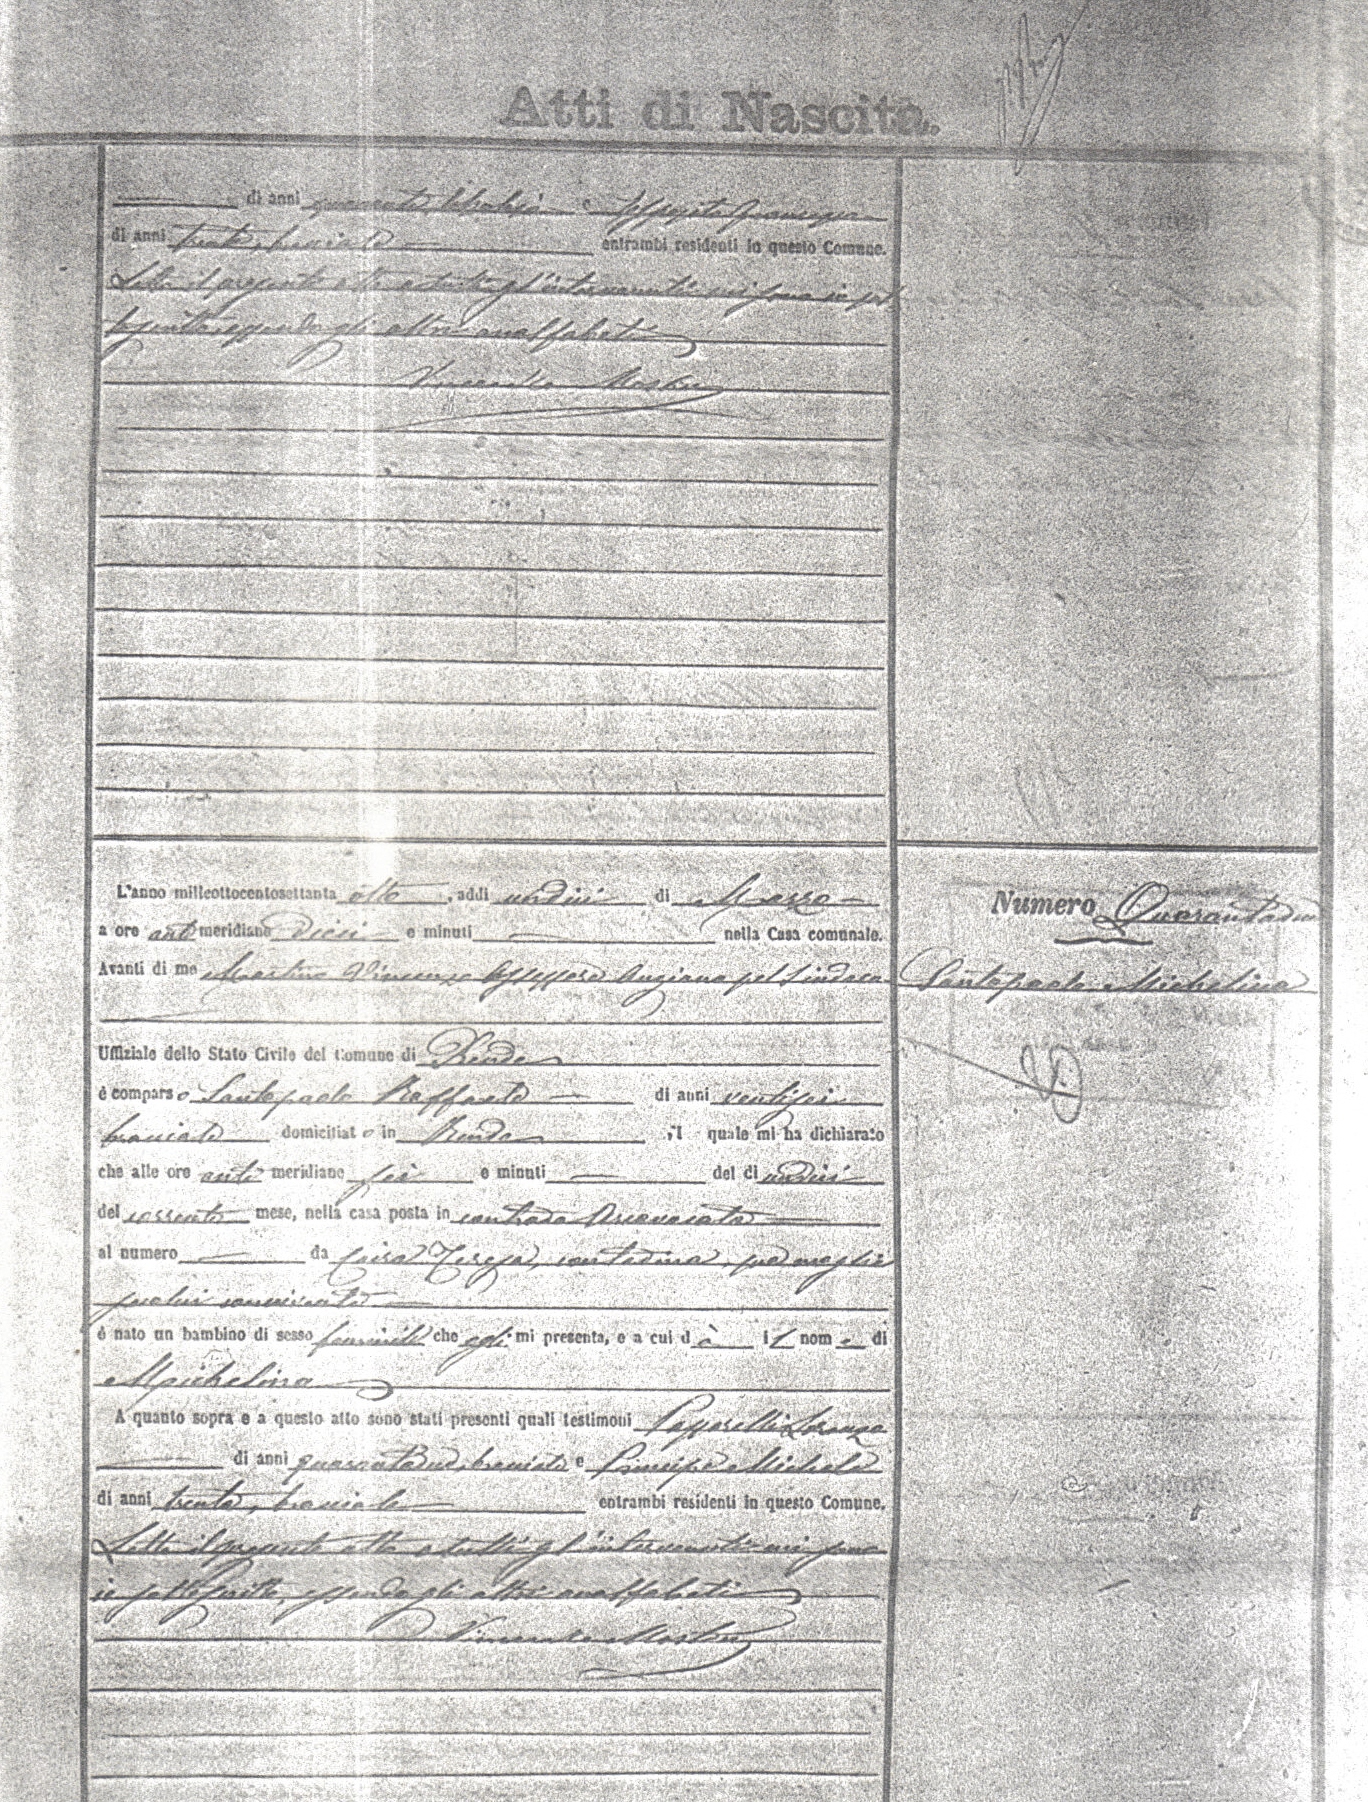 Atti di Nascita.
di anni quaranta e
di anni trenta, bracciale entrambi residenti in questo Comune.
Letto il presente atto a tutti gl'intervenuti mi sono io sot
toscritto essendo gli altri analfabeti
Vincenzo
L'anno milleottocentosettanta otto, addì undici di Marzo
a ore anti meridiane Dieci e minuti nella Casa comunale.
Avanti di me Vincenzo Assessore Anziano pel Sindaco
Uffiziale dello Stato Civile del Comune di Rende
è comparso Santopaolo Raffaele di anni ventisei
bracciale domiciliato in Rende, il quale mi ha dichiarato
che alle ore anti meridiane sei e minuti del dì undici
del corrente mese, nella casa posta in contrada Arcavacata
al numero da Teresa, contadina, sua moglie
seco lui convivente
è nato un bambino di sesso femminile che egli mi presenta, e a cui dà il nome di
Michelina
A quanto sopra e a questo atto sono stati presenti quali testimoni
di anni bracciale e Principe Michele
di anni trenta, bracciale entrambi residenti in questo Comune.
Letto il presente atto a tutti gl'intervenuti mi sono
io sottoscritto, essendo gli altri analfabeti
Vincenzo
Numero Quarantadue
Santopaolo Michelina